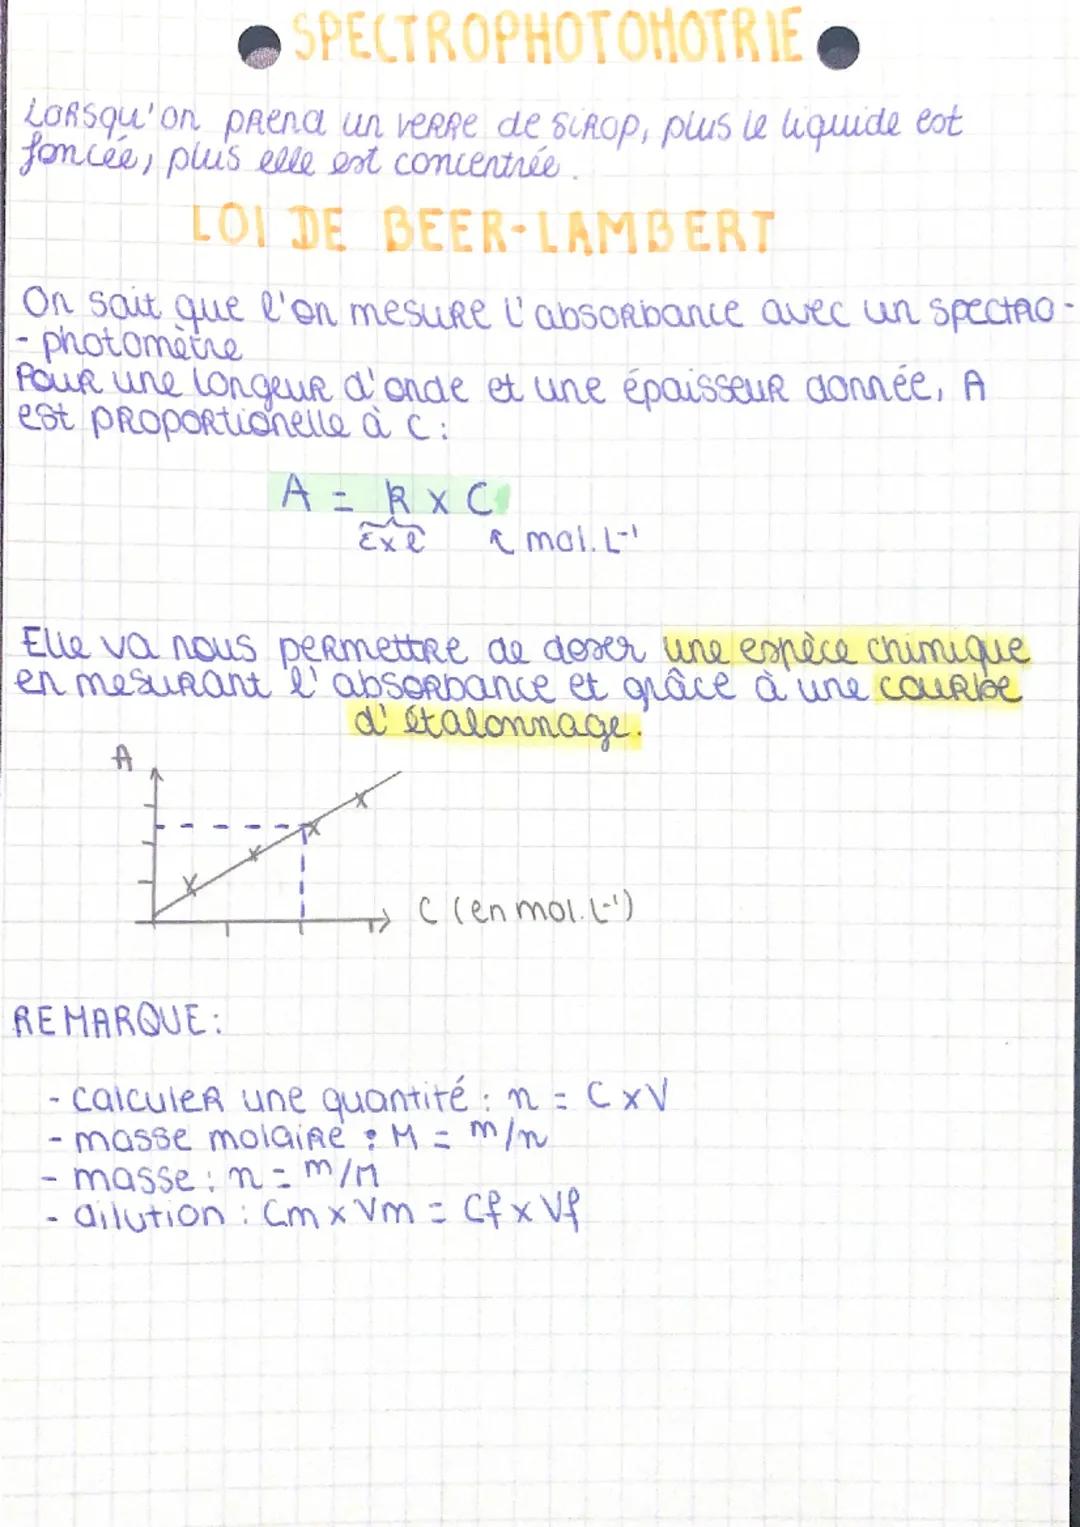 SPECTROPHOTOMOTRIE
Lorsqu'on prend un verre de sirop, plus le liquide est
foncée, plus elle est concentrée.
LOI DE BEER-LAMBERT
On sait que l'on mesure l'absorbance avec un spectro-
-photomètre
Pour une longeur d'onde et une épaisseur donnée, A
est proportionelle à C :
A = k x C
ε x l ↖ mol.L⁻¹
Elle va nous permettre de doser une espèce chimique
en mesurant l'absorbance et grâce à une courbe
d'étalonnage.
A
C (en mol.L⁻¹)
REMARQUE :
- calculer une quantité : n = C x V
- masse molaire : M = m/n
- masse : n = m/M
- dilution : Cm x Vm = Cf x Vf